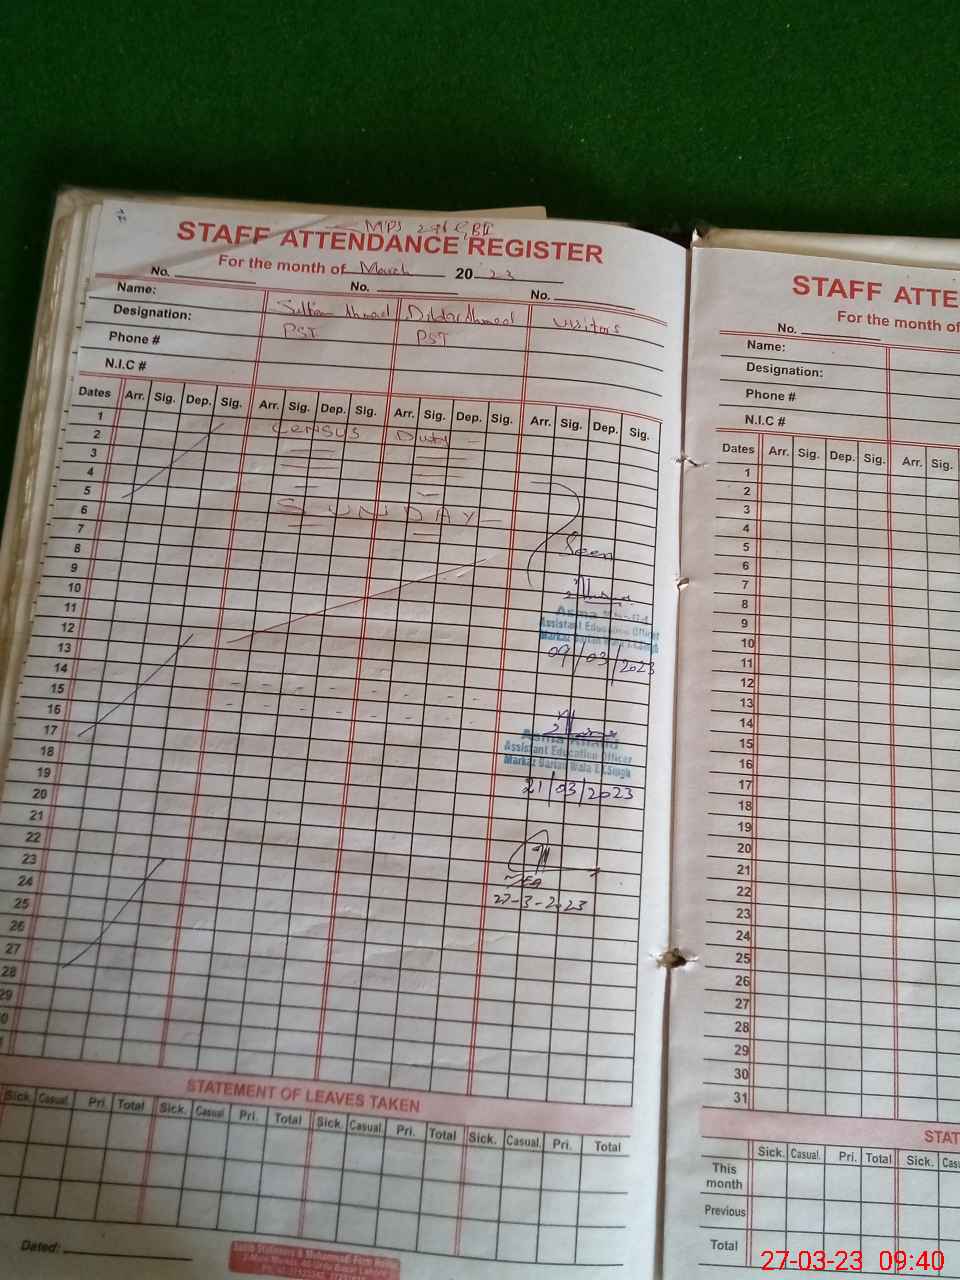 MPS
STAFF ATTENDANCE REGISTER
For the month of March 2023
No. No. No.
Name: Sultan Ahmad Dildar Ahmad Visitors
Designation: PST PST
Phone #
N.I.C #
Dates Arr. Sig. Dep. Sig. Arr. Sig. Dep. Sig. Arr. Sig. Dep. Sig. Arr. Sig. Dep. Sig.
1
2 Census Duty
3
4
5
6 SUNDAY
7
8
Seen
9
10
11
Assistant Education Officer
12
09/03/2023
13
14
15
16
17
Assistant Education Officer
18
19
21/03/2023
20
21
22
23
24
27-3-2023
25
26
27
28
29
STATEMENT OF LEAVES TAKEN
Sick. Casual. Pri. Total Sick. Casual. Pri. Total Sick. Casual. Pri. Total Sick. Casual. Pri. Total
Dated:
STAFF ATTE
For the month of
No.
Name:
Designation:
Phone #
N.I.C #
Dates Arr. Sig. Dep. Sig. Arr. Sig.
1
2
3
4
5
6
7
8
9
10
11
12
13
14
15
16
17
18
19
20
21
22
23
24
25
26
27
28
29
30
31
STAT
Sick. Casual. Pri. Total Sick. Cas
This month
Previous
Total
27-03-23 09:40